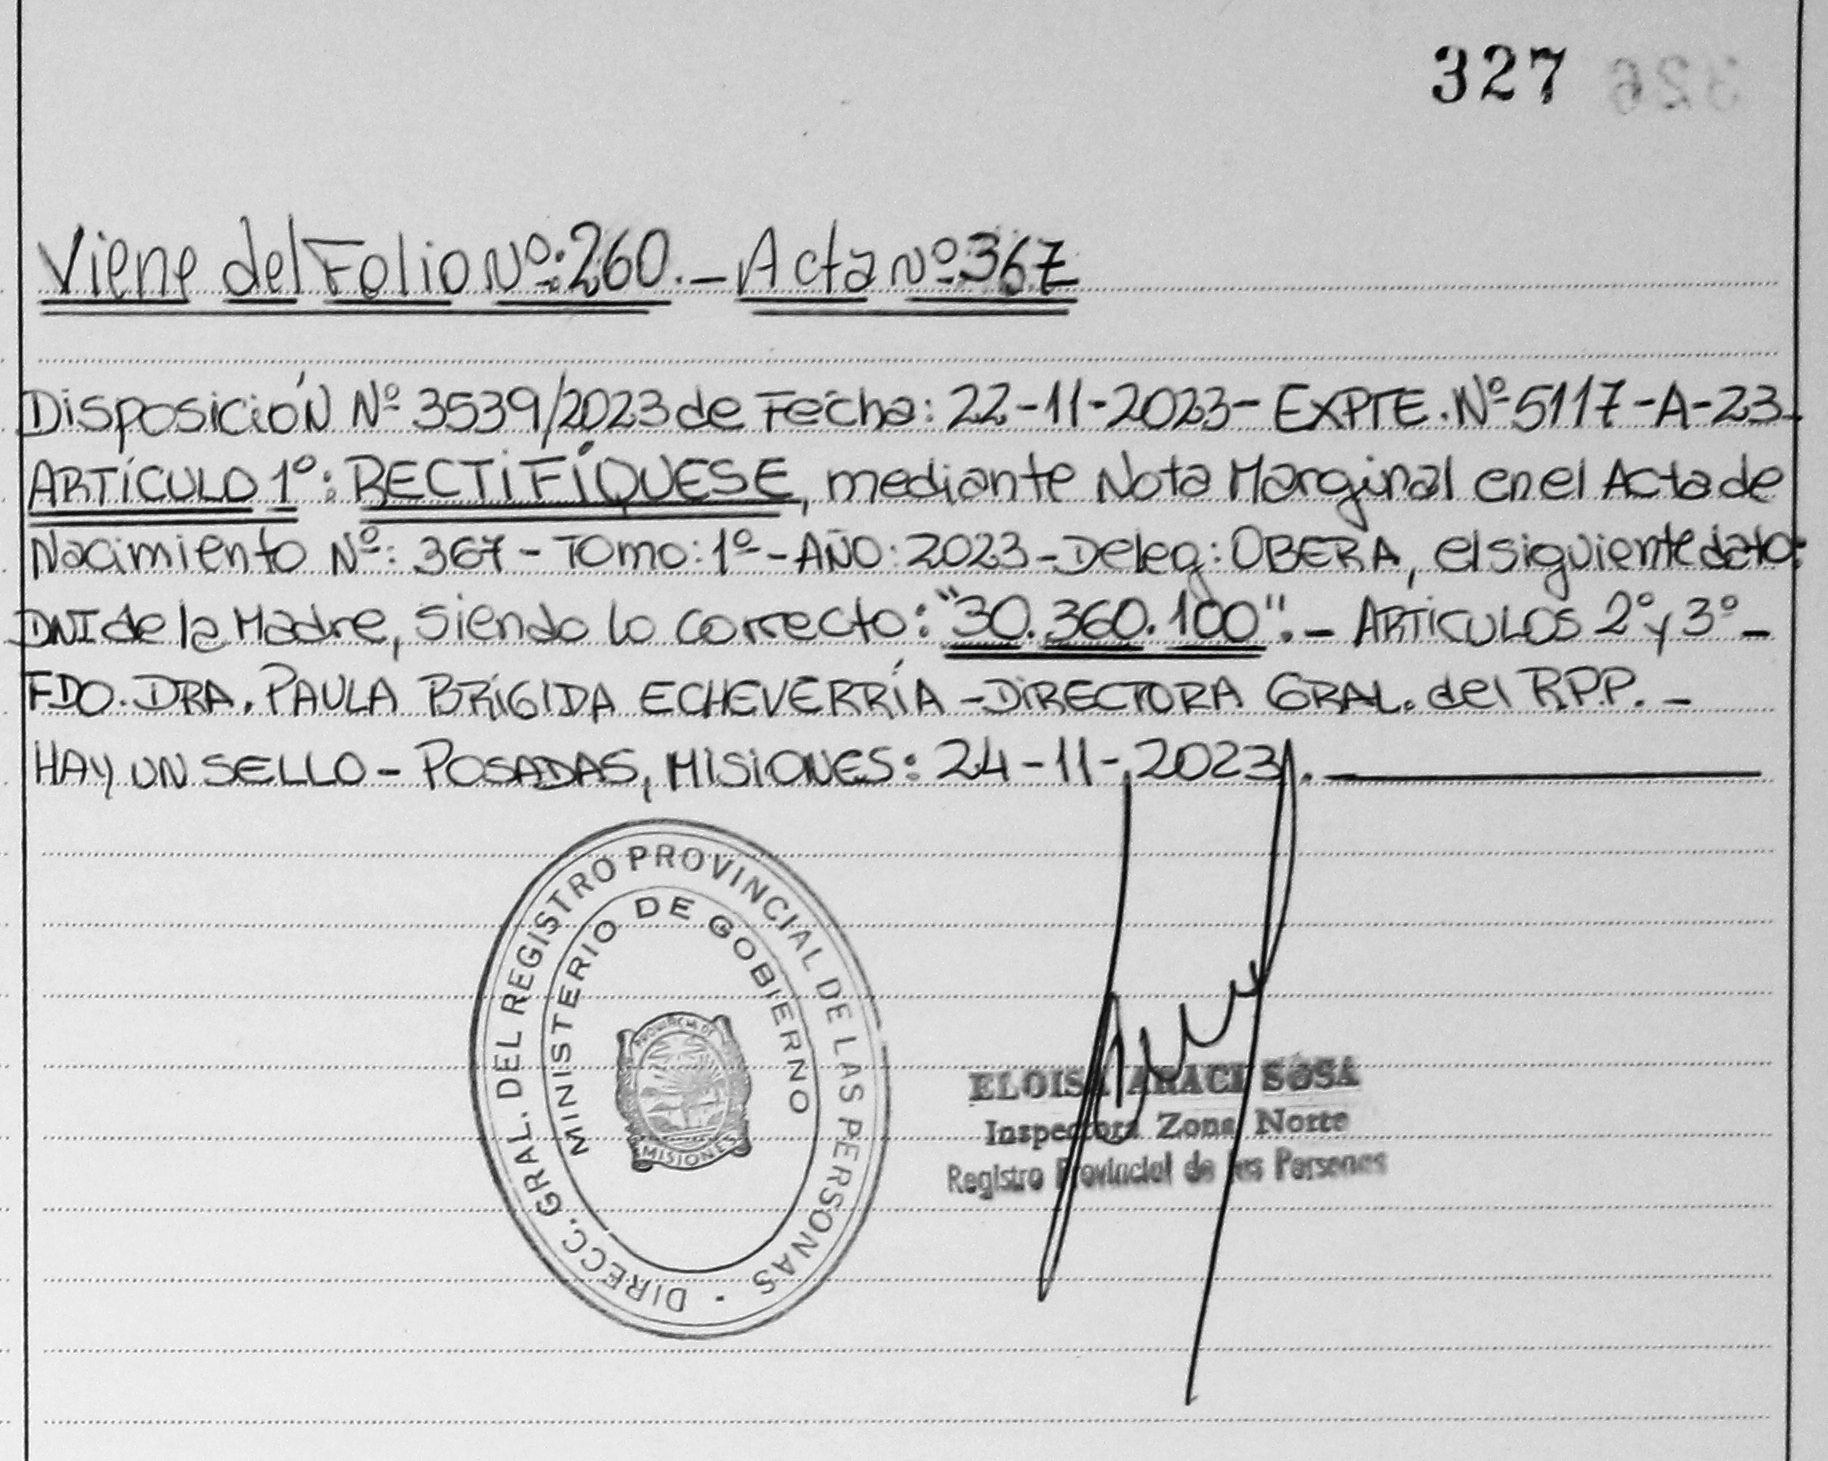 327
326
Viene del Folio Nº: 260.- Acta Nº 367
Disposición Nº 3539/2023 de Fecha: 22-11-2023- EXPTE. Nº 5117-A-23-
ARTÍCULO 1º: RECTIFÍQUESE, mediante Nota Marginal en el Acta de
Nacimiento Nº: 367 - Tomo: 1º - AÑO: 2023 - Deleg: OBERA, el siguiente dato:
DNI de la Madre, siendo lo correcto: "30.360.100".- ARTICULOS 2º y 3º -
FDO. DRA. PAULA BRÍGIDA ECHEVERRÍA - DIRECTORA GRAL. del R.P.P. -
HAY UN SELLO - POSADAS, MISIONES: 24-11-2023.
DIRECC. GRAL. DEL REGISTRO PROVINCIAL DE LAS PERSONAS
MINISTERIO DE GOBIERNO
PROVINCIA DE
MISIONES
ELOISA ARACI SOSA
Inspectora Zona Norte
Registro Provincial de las Personas